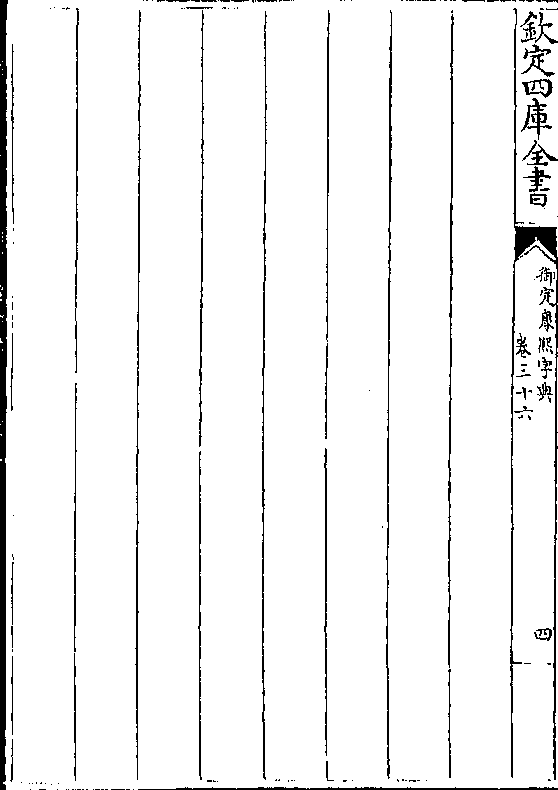 欽定四庫全書
御定康熙字典
卷三十六
四